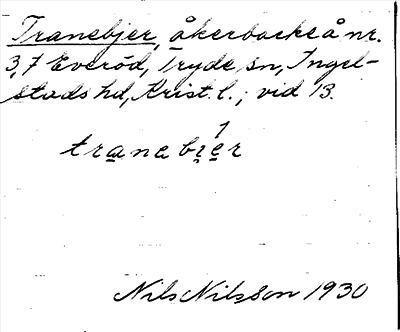 Tranebjer, åkerbacke å nr.
3,7 Everöd, Tryde sn, Ingel-
stads hd, Krist. l.; vid 13.
1
tranabier
Nils Nilsson 1930